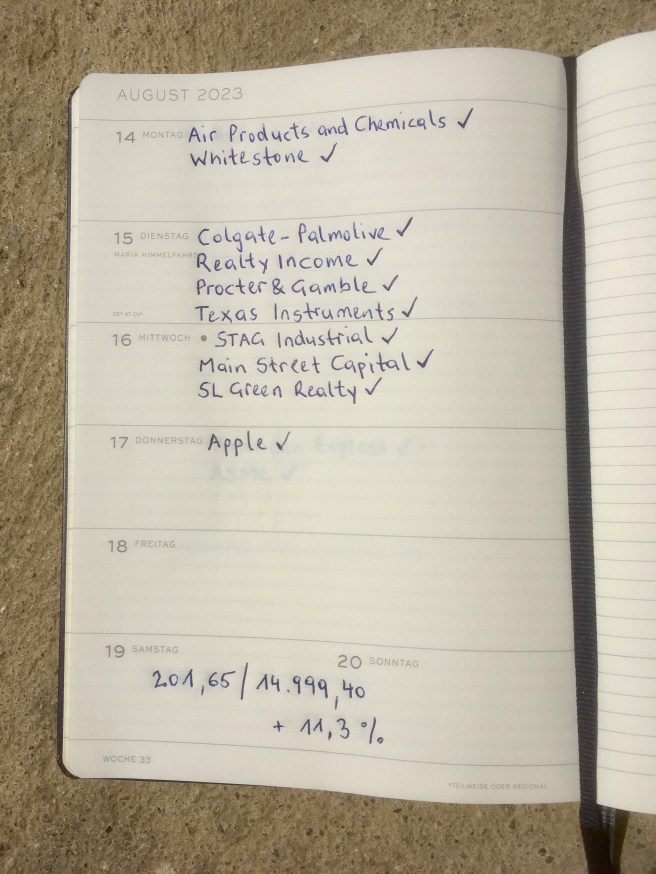 AUGUST 2023
14 MONTAG Air Products and Chemicals ✓
Whitestone ✓
15 DIENSTAG Colgate-Palmolive ✓
MARIÄ HIMMELFAHRT Realty Income ✓
Procter & Gamble ✓
DE* AT CH* Texas Instruments ✓
16 MITTWOCH • STAG Industrial ✓
Main Street Capital ✓
SL Green Realty ✓
17 DONNERSTAG Apple ✓
ASML ✓
18 FREITAG
19 SAMSTAG
20 SONNTAG
201,65 / 14.999,40
+ 11,3 %
WOCHE 33
*TEILWEISE ODER REGIONAL